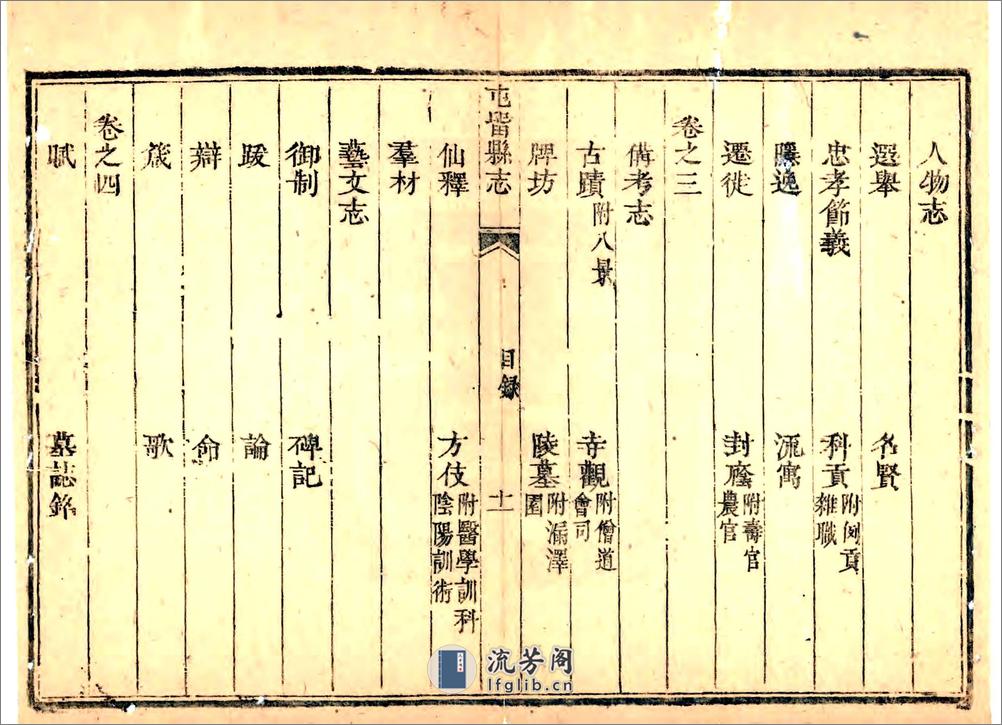 人物志
選舉 名賢
忠孝節義 科貢附例貢雜職
隱逸 流寓
遷徙 封廕附壽官農官
卷之三
備考志
古蹟附八景 寺觀附僧道會司
牌坊 陵墓附漏澤園
屯留縣志 目錄 十一
仙釋 方伎附醫學訓科陰陽訓術
羣材
藝文志
御制 碑記
跋 論
辯 命
箴 歌
卷之四
賦 墓誌銘
流芳阁
lfglib.cn